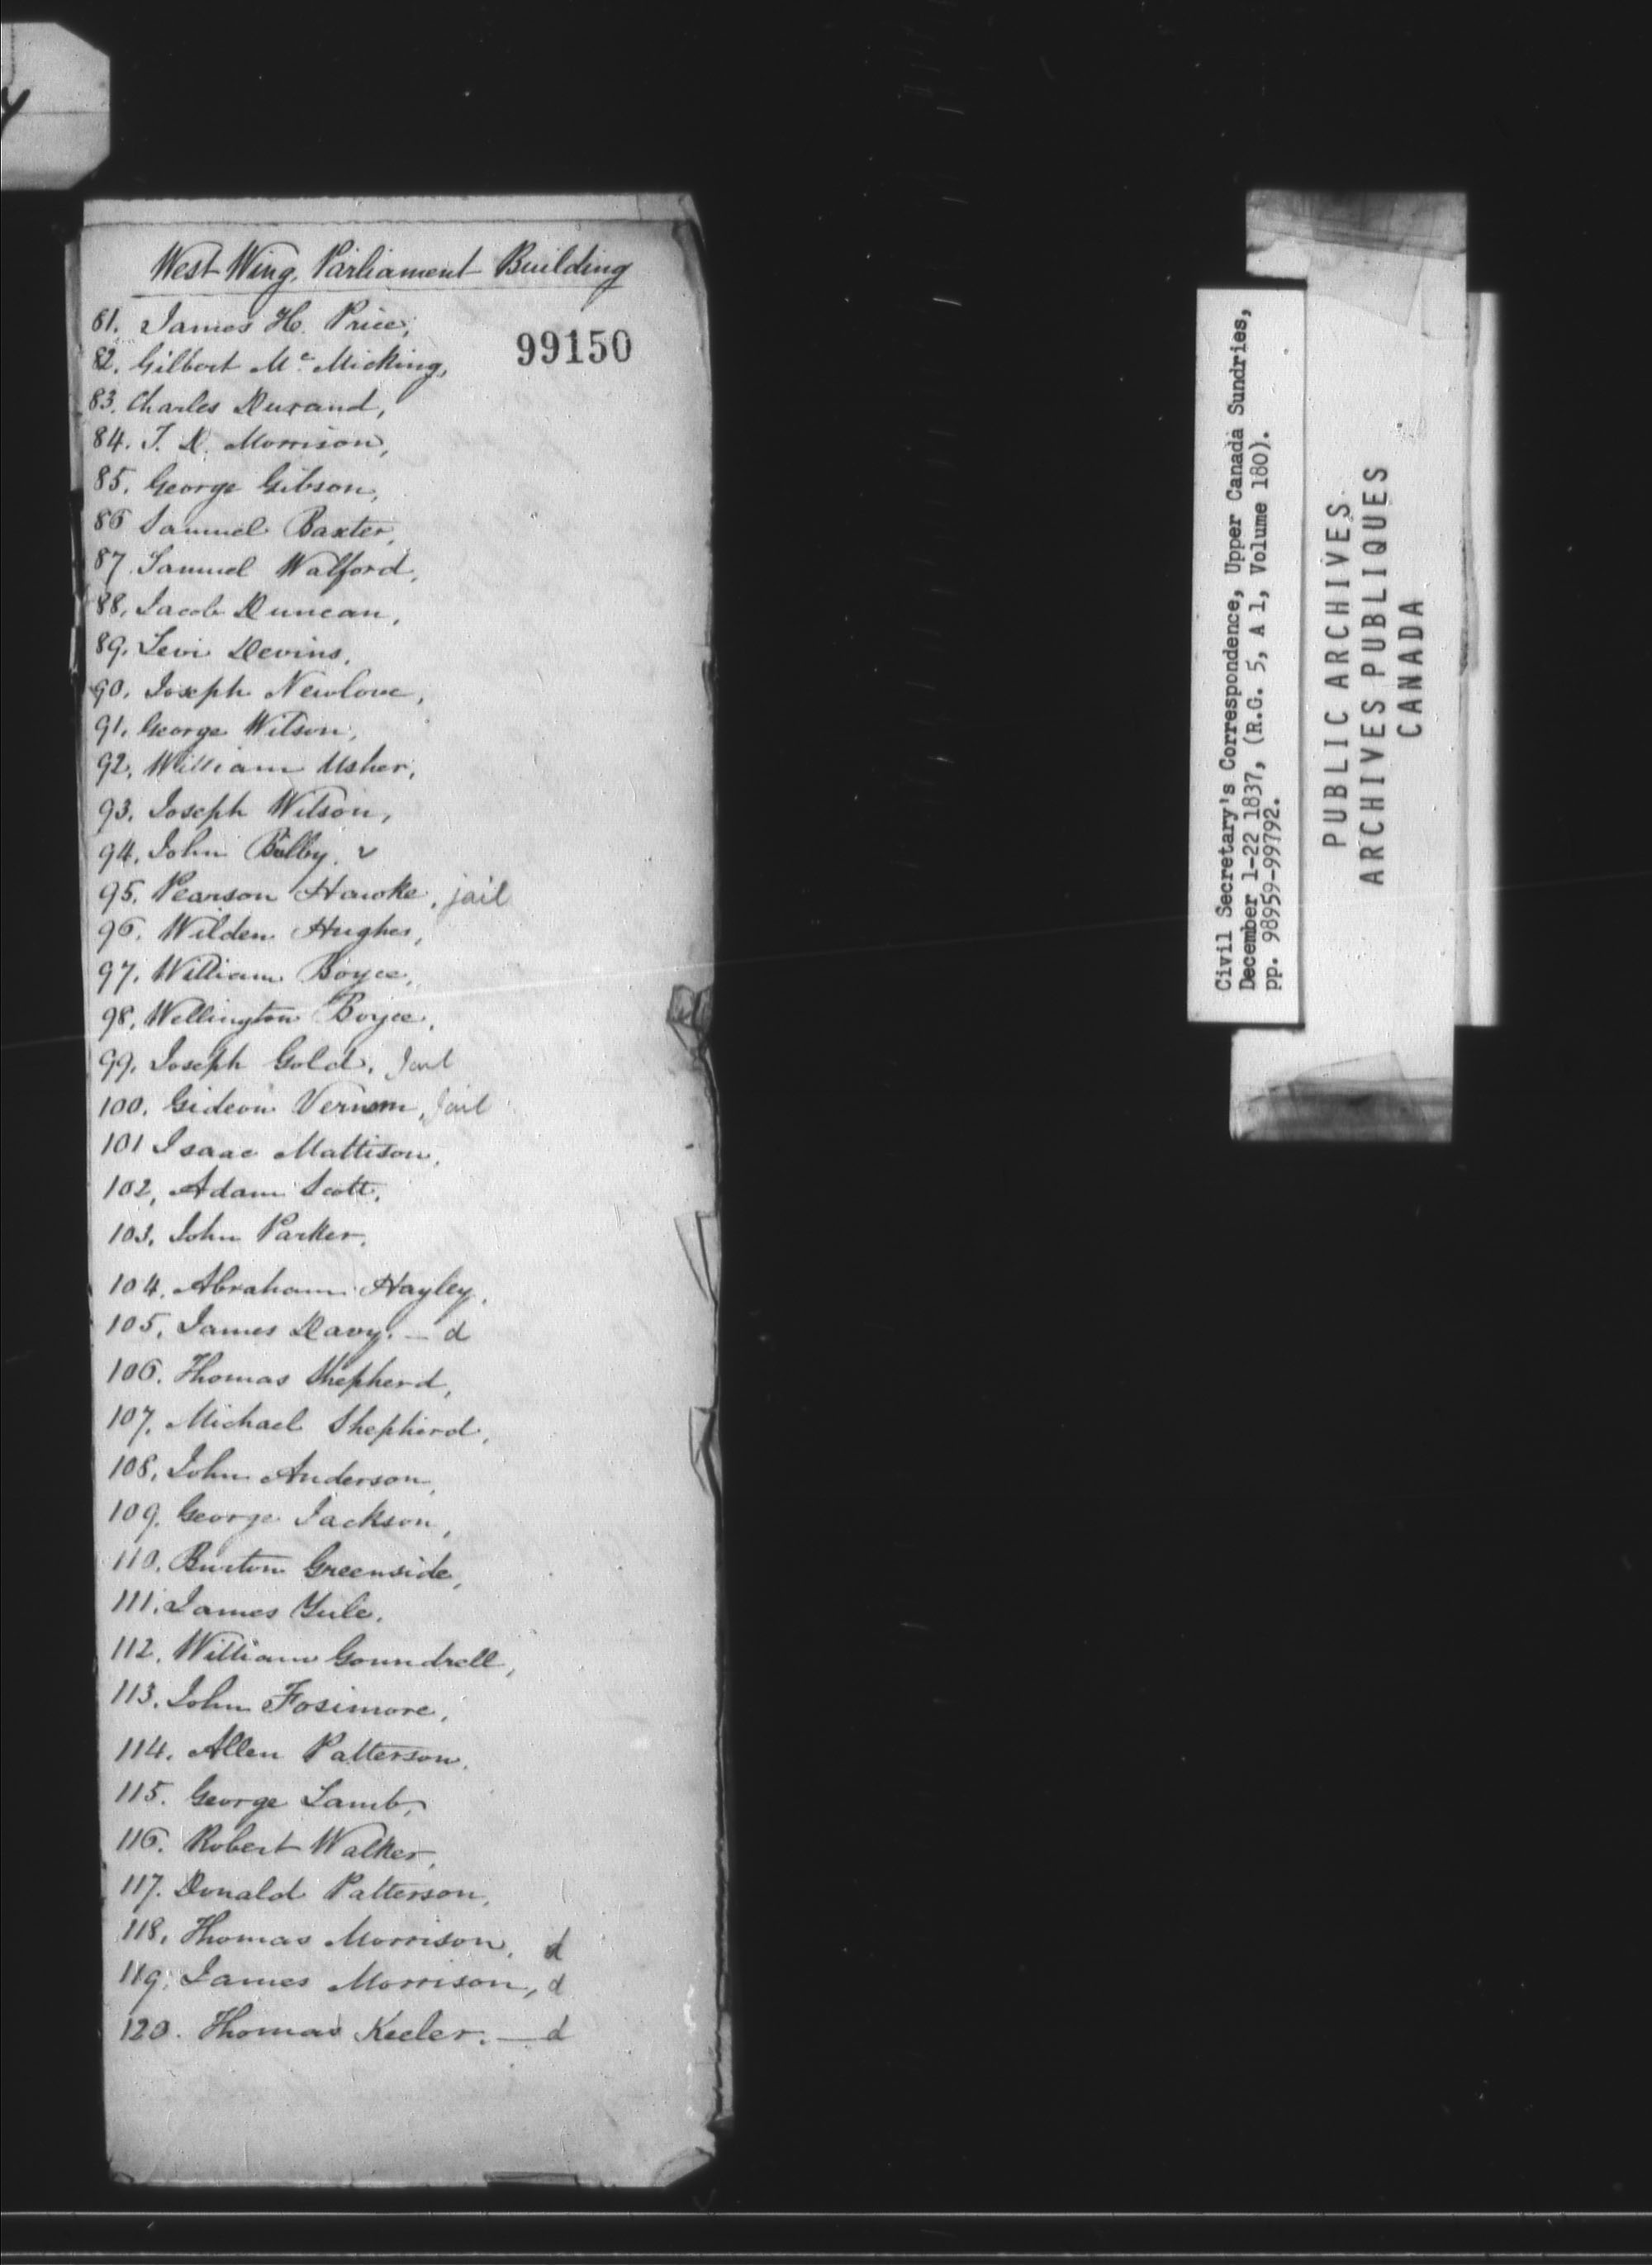 West Wing, Parliament Building
99150
81. James H. Price,
82. Gilbert Mc Micking,
83. Charles Durand,
84. T. D. Morrison,
85. George Gibson,
86 Samuel Baxter,
87. Samuel Walford,
88. Jacob Duncan,
89. Levi Devins,
90. Joseph Newlove,
91. George Wilson,
92. William Usher,
93. Joseph Wilson,
94. John Bulby. v
95. Pearson Hawke, jail
96. Wilden Hughes,
97. William Boyce,
98. Wellington Boyce,
99. Joseph Gold. Jail
100. Gideon Vernom, Jail
101 Isaac Mattison,
102, Adam Scott,
103. John Parker,
104. Abraham Hayley,
105. James Davy. — d
106. Thomas Shepherd,
107. Michael Shepherd,
108. John Anderson,
109. George Jackson,
110. Burton Greenside,
111. James Yule.
112. William Goundrell,
113. John Fosimore,
114. Allen Patterson,
115. George Lamb,
116. Robert Walker,
117. Donald Patterson,
118. Thomas Morrison, d
119. James Morrison, d
120. Thomas Keeler. — d
Civil Secretary's Correspondence, Upper Canada Sundries,
December 1-22 1837, (R.G. 5, A 1, Volume 180).
pp. 98959-99792.
PUBLIC ARCHIVES
ARCHIVES PUBLIQUES
CANADA